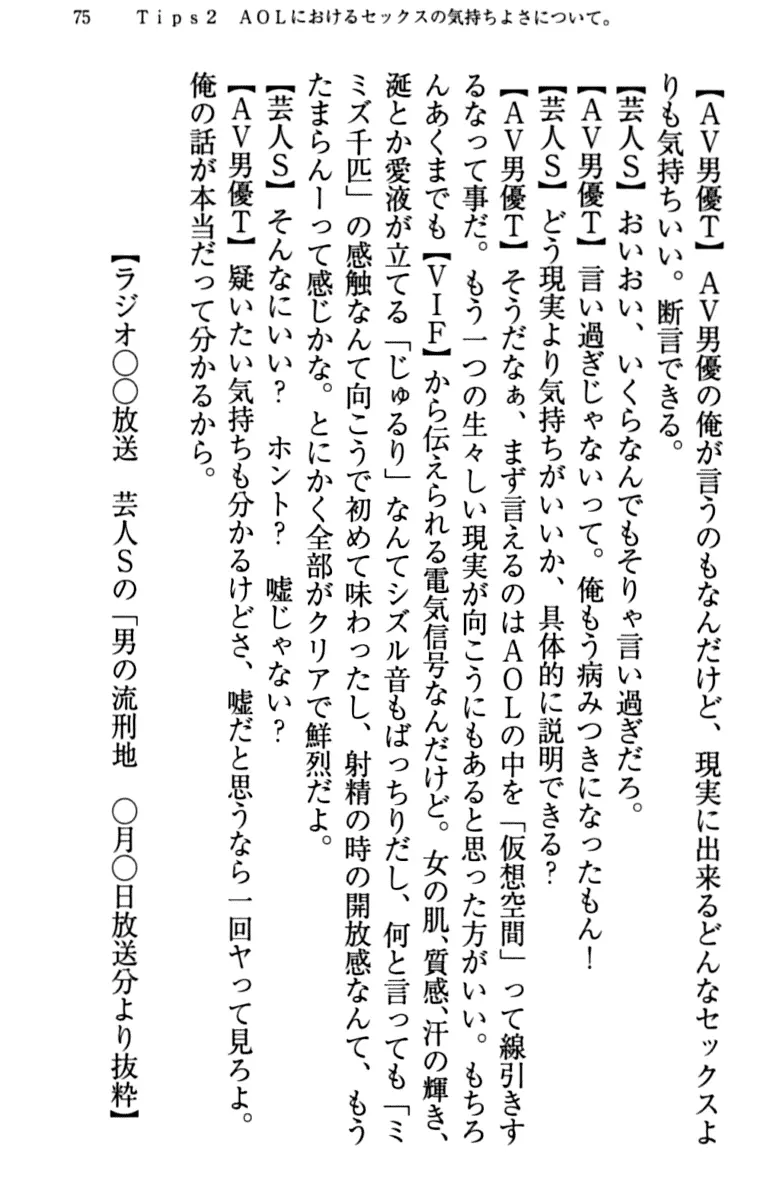 75　Tips2　AOLにおけるセックスの気持ちよさについて。
【AV男優T】AV男優の俺が言うのもなんだけど、現実に出来るどんなセックスよ
りも気持ちいい。断言できる。
【芸人S】おいおい、いくらなんでもそりゃ言い過ぎだろ。
【AV男優T】言い過ぎじゃないって。俺もう病みつきになったもん！
【芸人S】どう現実より気持ちがいいか、具体的に説明できる？
【AV男優T】そうだなぁ、まず言えるのはAOLの中を「仮想空間」って線引きす
るなって事だ。もう一つの生々しい現実が向こうにもあると思った方がいい。もちろ
んあくまでも【VIF】から伝えられる電気信号なんだけど。女の肌、質感、汗の輝き、
涎とか愛液が立てる「じゅるり」なんてシズル音もばっちりだし、何と言っても「ミ
ミズ千匹」の感触なんて向こうで初めて味わったし、射精の時の開放感なんて、もう
たまらんーって感じかな。とにかく全部がクリアで鮮烈だよ。
【芸人S】そんなにいい？　ホント？　嘘じゃない？
【AV男優T】疑いたい気持ちも分かるけどさ、嘘だと思うなら一回ヤって見ろよ。
俺の話が本当だって分かるから。
【ラジオ〇〇放送　芸人Sの「男の流刑地　〇月〇日放送分より抜粋】